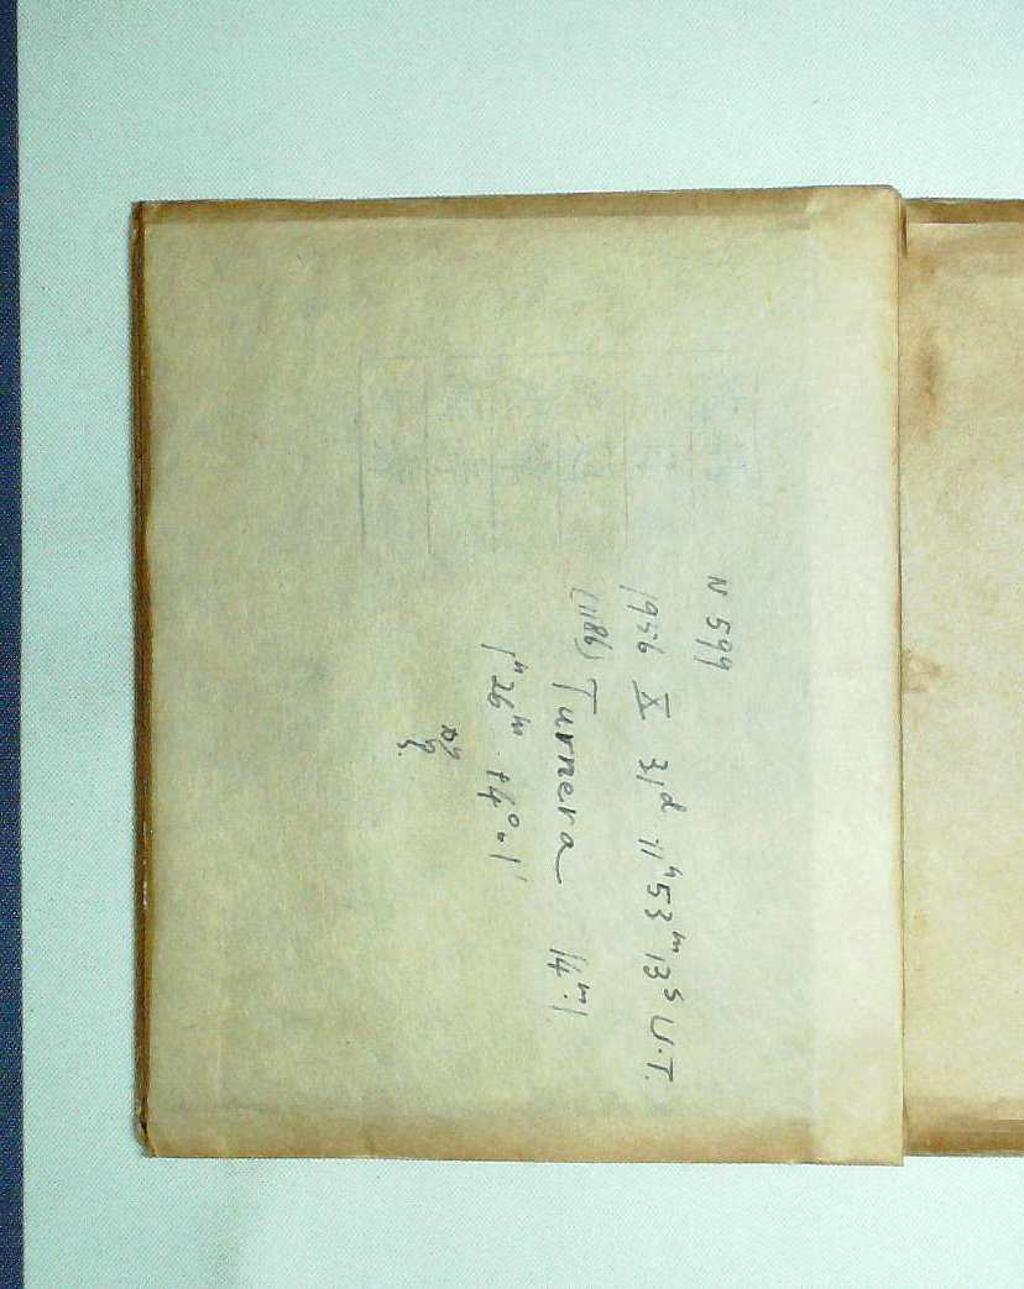 N 599
1956 X 31ᵈ 11ʰ53ᵐ13ˢ U.T.
(1186) Turnera 14ᵐ.1
1ʰ26ᵐ +4°.1'